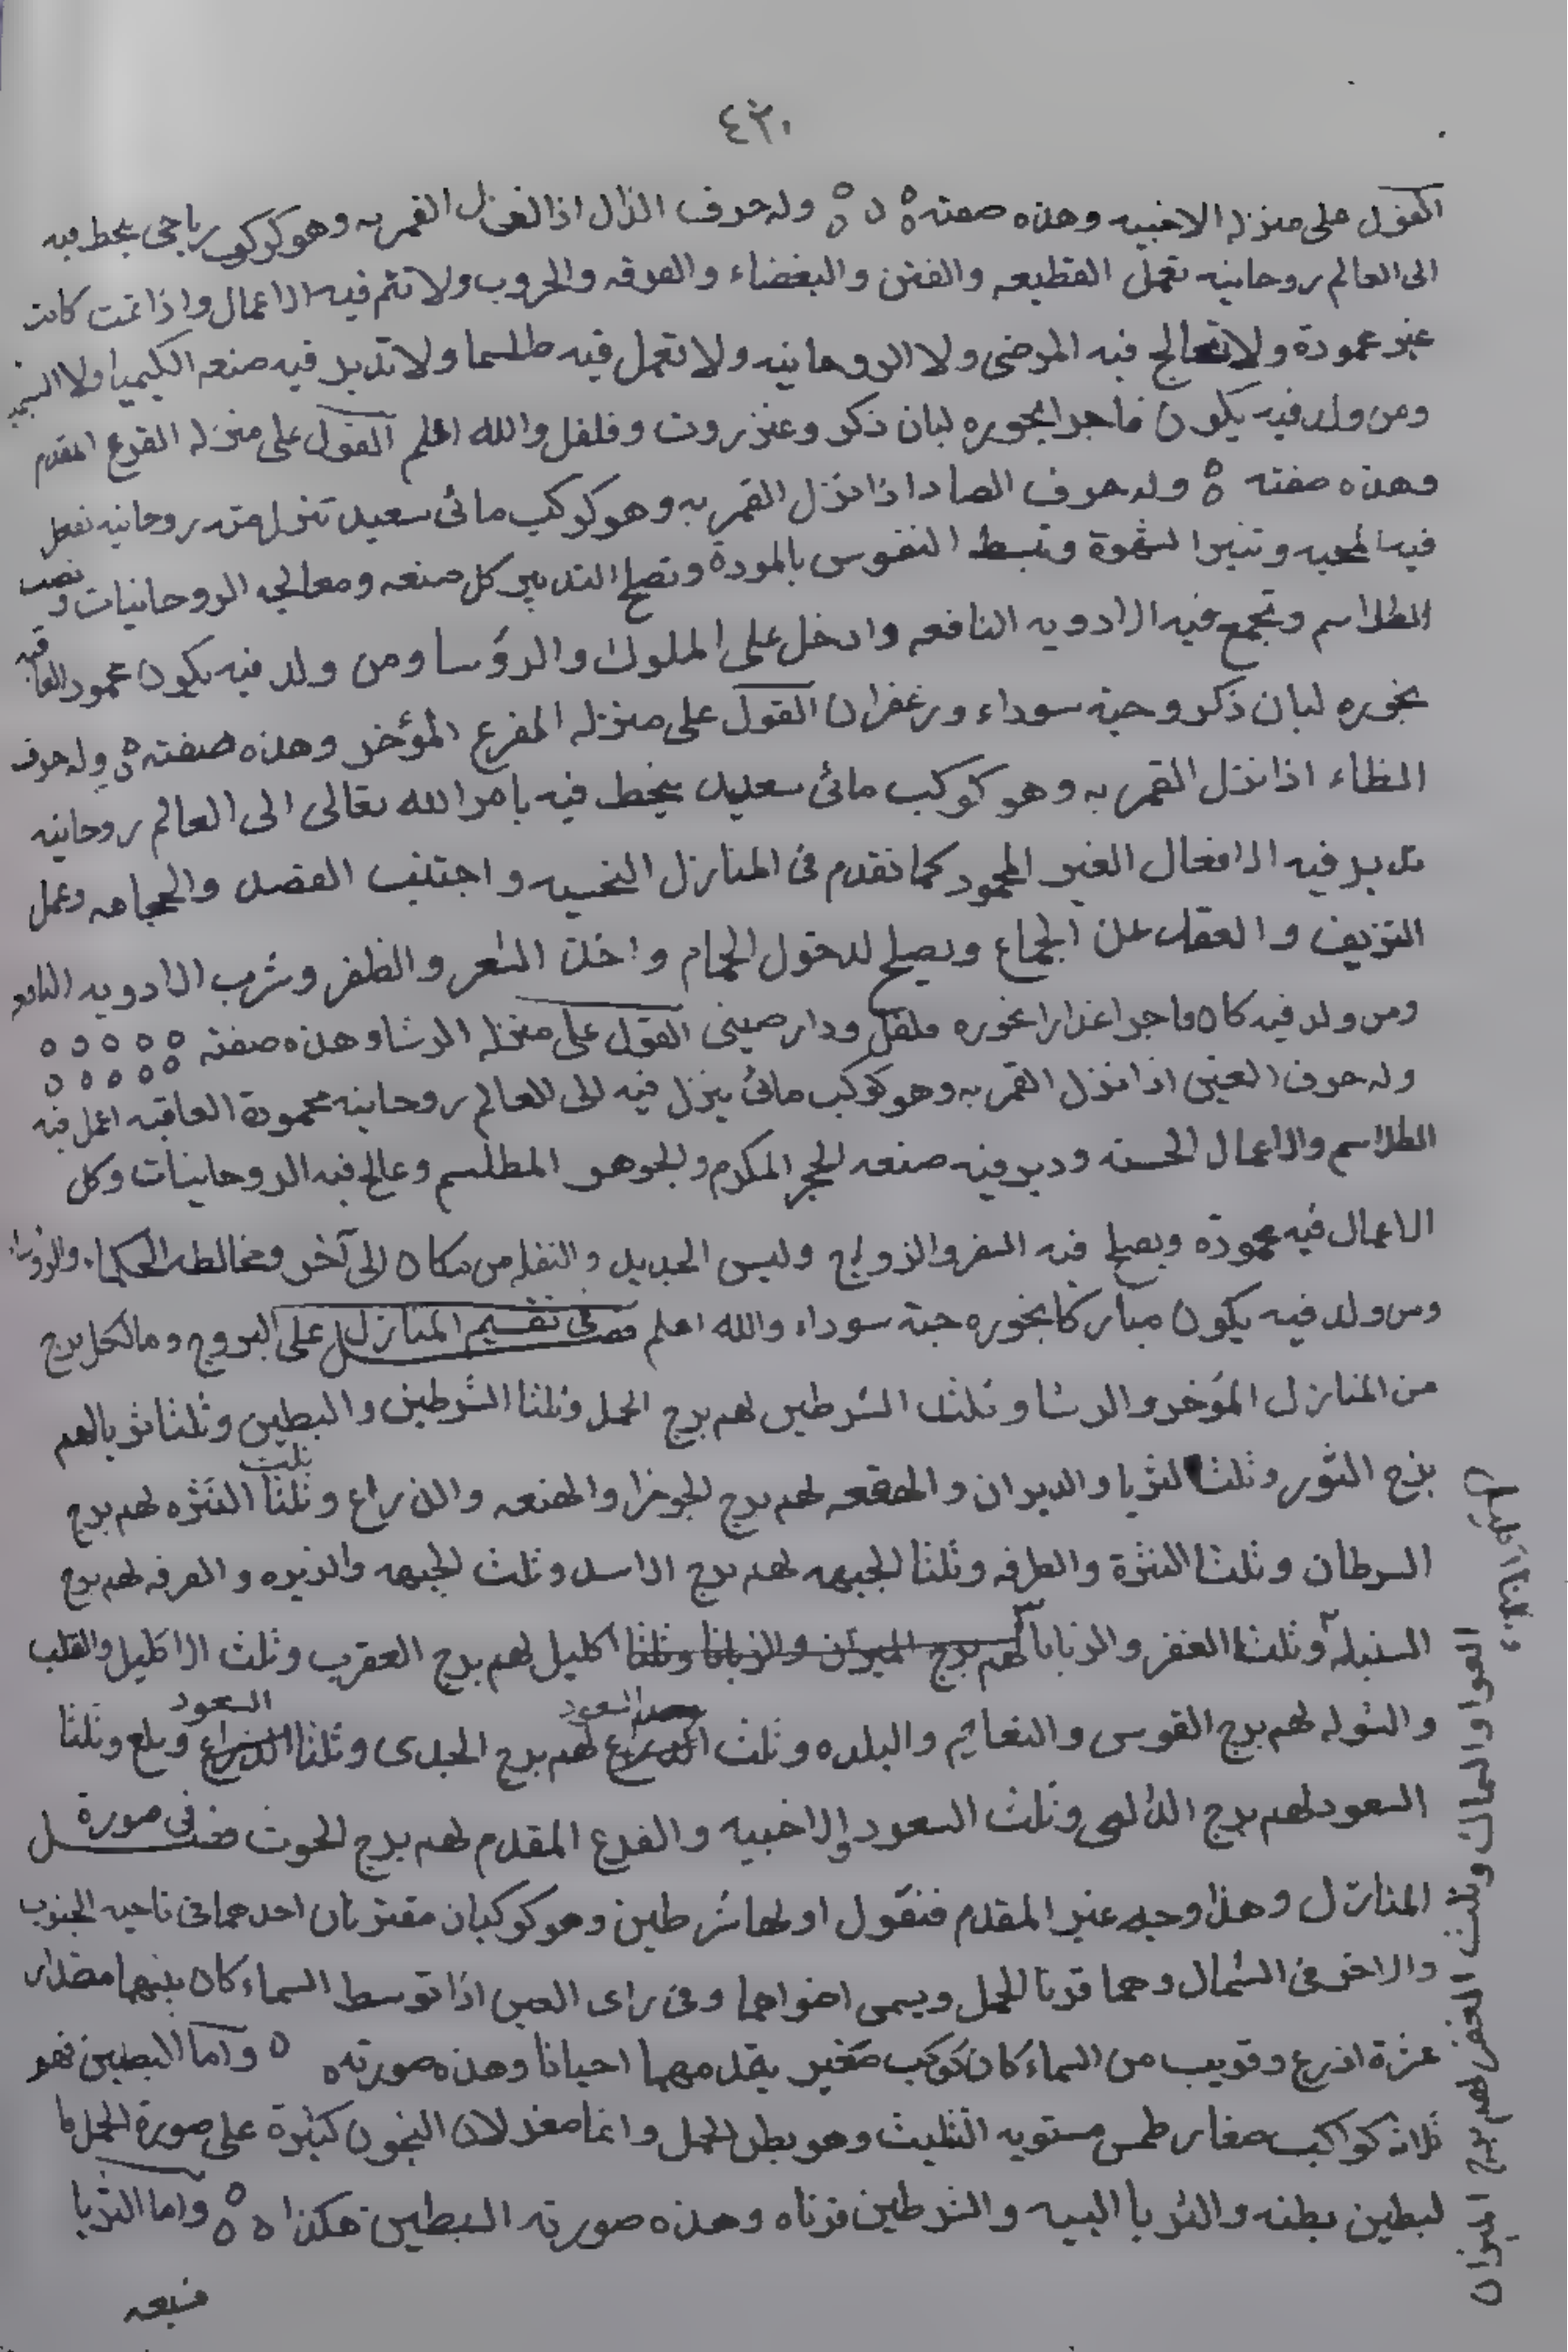 ٤٢٠
القول على منزلة الاخبيه وهذه صفته وله حرف الذال اذا القمر به وهو كوكب رياحى يحط فيه
الى العالم روحانيه تعمل القطيعه والفتن والبغضاء والفرقه والحروب ولا تتم فيه الاعمال واذا تمت كانت
غير محمودة ولا تعالج فيه المرضى ولا الروحانيه ولا تعمل فيه طلسما ولا تدبر فيه صنعه الكيميا ولا
ومن ولد فيه يكون فاجرا بخوره لبان ذكر وعنزروت وفلفل والله اعلم القول على منزله الفرع المقدم
وهذه صفته وله حرف الضاد اذا نزل القمر به وهو كوكب مائى سعيد تنزل منه روحانيه تفعل
فيه المحبه وتثير الشهوة وتبسط النفوس بالمودة وتصلح لتدبير كل صنعه ومعالجه الروحانيات ونصب
الطلاسم وتجمع فيه الادويه النافعه وادخل على الملوك والرؤسا ومن ولد فيه يكون محمود العاقبه
بخوره لبان ذكر وحبة سوداء وزعفران القول على منزله المفرع المؤخر وهذه صفته وله حرف
الظاء اذا نزل القمر به وهو كوكب مائى سعيد ينحط فيه بامر الله تعالى الى العالم روحانيه
تدبر فيه الافعال الغير المحمود كما تقدم فى المنازل النحسيه واجتنب الفصد والحجامه وعمل
النزيف والعقد عن الجماع ويصلح لدخول الحمام واخذ الشعر والظفر وشرب الادويه النافعه
ومن ولد فيه كان فاجرا غدارا بخوره فلفل ودارصينى القول على منزله الرشا وهذه صفته
وله حرف الغين اذا نزل القمر به وهو كوكب مائى ينزل فيه الى العالم روحانيه محمودة العاقبه اعمل فيه
الطلاسم والاعمال الحسنه ودبر فيه صنعه الحجر المكرم والجوهر المطلسم وعالج فيه الروحانيات وكل
الاعمال فيه محمودة ويصلح فيه السفر والزواج ولبس الجديد والنقله من مكان الى آخر ومخالطه الحكما والرؤسا
ومن ولد فيه يكون مباركا بخوره حبة سوداء والله اعلم فصل فى تقسيم المنازل على البروج وما لكل برج
من المنازل المؤخر والرشا وثلث الشرطين لهم برج الحمل وثلثا الشرطين والبطين وثلثا ثريا لهم
برج الثور وثلث الثريا والدبران والهقعه لهم برج الجوزا والهنعه والذراع وثلثا ثلث النثره لهم برج
السرطان وثلثا النثرة والطرفه وثلثا الجبهه لهم برج الاسد وثلث الجبهه والزبره والصرفه لهم برج
السنبلة وثلثا الغفر والزبانا لهم برج الميزان والزبانا وثلثا اكليل لهم برج العقرب وثلث الاكليل والقلب
والشوله لهم برج القوس والنعايم والبلده وثلث الذراع لهم برج الجدى وثلثا الذراع السعود وبلع وثلثا
السعود لهم برج الدالى وثلث السعود والاخبيه والفرع المقدم لهم برج الحوت فصل فى صورة
المنازل وهذا وجه غير المقدم فنقول اولها شرطين وهو كوكبان مقترنان احدهما فى ناحيه الجنوب
والاخر فى الشمال وهما قرنا الحمل ويسمى وفى راى العين اذا توسط السماء كان بينهما مقدار
اذرع وقريب من السماء كان كوكب صغير يقدمهما احيانا وهذه صورته واما البطين فهو
ثلاثه كواكب صغار طمس مستويه التثليث وهو بطن الحمل وانما صغر لان النجون كثيرة على صورة الحمل
لبطين بطنه والثريا اليه والشرطين قرناه وهذه صورته البطين هكذا واما الثريا
فسبعه
العوا والسماك وثلث الغفر لهم برج الميزان